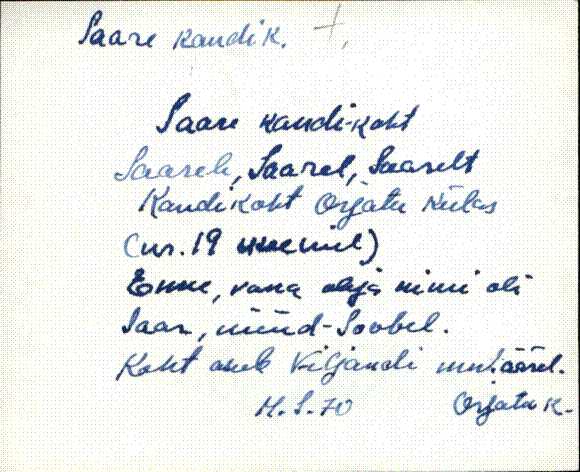 Saare kandik. +.
Saare kandi-koht
Saarele, Saarel, Saarelt
Kandikoht Orjatu külas
(nr. 19
Enne, vana aja nimi oli
Saar, nüüd - Soobel.
Koht aseb Viljandi mnt. äärel.
M. S. 70 Orjatu k.